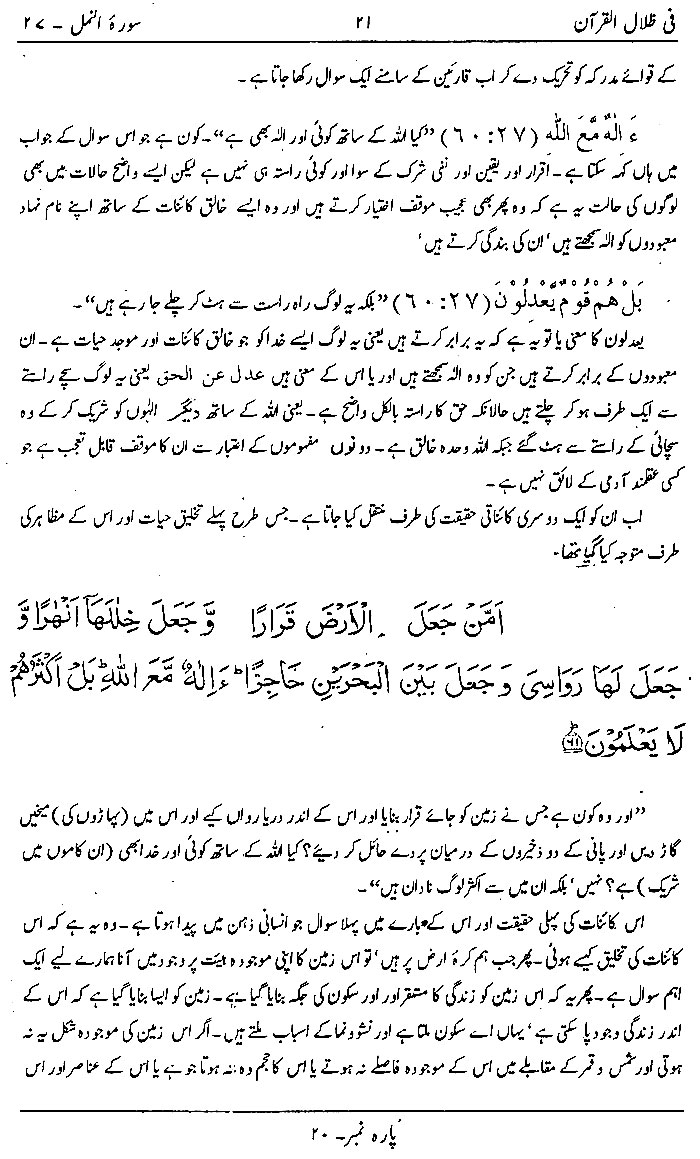 فی ظلال القرآن ۲۱ سورۃ النمل ۔ ۲۷
کے قوائے مدرکہ کو تحریک دے کر اب قارئین کے سامنے ایک سوال رکھا جاتا ہے ۔
ءَ اِلٰہٌ مَّعَ اللّٰہِ (۲۷:۶۰) ”کیا اللہ کے ساتھ کوئی اور الٰہ بھی ہے“۔ کون ہے جو اس سوال کے جواب
میں ہاں کہہ سکتا ہے ۔ اقرار اور یقین اور نفی شرک کے سوا اور کوئی راستہ ہی نہیں ہے لیکن ایسے واضح حالات میں بھی
لوگوں کی حالت یہ ہے کہ وہ پھر بھی عجیب موقف اختیار کرتے ہیں اور وہ ایسے خالق کائنات کے ساتھ اپنے نام نہاد
معبودوں کو الٰہ سمجھتے ہیں‘ ان کی بندگی کرتے ہیں‘
بَلْ هُمْ قَوْمٌ يَّعْدِلُوْنَ (۲۷:۶۰) ”بلکہ یہ لوگ راہ راست سے ہٹ کر چلے جا رہے ہیں“۔
یعدلون کا معنی یا تو یہ ہے کہ یہ برابر کرتے ہیں یعنی یہ لوگ ایسے خدا کو جو خالق کائنات اور موجد حیات ہے ۔ ان
معبودوں کے برابر کرتے ہیں جن کو وہ الٰہ سمجھتے ہیں اور یا اس کے معنی ہیں عدل عن الحق یعنی یہ لوگ سچے راستے
سے ایک طرف ہو کر چلتے ہیں حالانکہ حق کا راستہ بالکل واضح ہے ۔ یعنی اللہ کے ساتھ دیگر الٰہوں کو شریک کر کے وہ
سچائی کے راستے سے ہٹ گئے جبکہ اللہ وحدہ خالق ہے ۔ دونوں مفہوموں کے اعتبار سے ان کا موقف قابل تعجب ہے جو
کسی عقلمند آدمی کے لائق نہیں ہے ۔
اب ان کو ایک دوسری کائناتی حقیقت کی طرف منتقل کیا جاتا ہے ۔ جس طرح پہلے تخلیق حیات اور اس کے مظاہر کی
طرف متوجہ کیا گیا تھا۔
اَمَّنْ جَعَلَ الْاَرْضَ قَرَارًا وَّ جَعَلَ خِلٰلَهَآ اَنْهٰرًا وَّ
جَعَلَ لَهَا رَوَاسِيَ وَ جَعَلَ بَيْنَ الْبَحْرَيْنِ حَاجِزًا ؕ ءَاِلٰهٌ مَّعَ اللّٰهِ ؕ بَلْ اَكْثَرُهُمْ
لَا يَعْلَمُوْنَ ؕ۶۱
”اور وہ کون ہے جس نے زمین کو جائے قرار بنایا اور اس کے اندر دریا رواں کیے اور اس میں (پہاڑوں کی) میخیں
گاڑ دیں اور پانی کے دو ذخیروں کے درمیان پردے حائل کر دیئے؟ کیا اللہ کے ساتھ کوئی اور خدا بھی (ان کاموں میں
شریک) ہے؟ نہیں‘ بلکہ ان میں سے اکثر لوگ نادان ہیں“۔
اس کائنات کی پہلی حقیقت اور اس کے بارے میں پہلا سوال جو انسانی ذہن میں پیدا ہوتا ہے ۔ وہ یہ ہے کہ اس
کائنات کی تخلیق کیسے ہوئی ۔ پھر جب ہم کرۂ ارض پر ہیں‘ تو اس زمین کا اپنی موجودہ ہیئت پر وجود میں آنا ہمارے لیے ایک
اہم سوال ہے ۔ پھر یہ کہ اس زمین کو زندگی کا مستقر اور اور سکون کی جگہ بنایا گیا ہے ۔ زمین کو ایسا بنایا گیا ہے کہ اس کے
اندر زندگی وجود پا سکتی ہے‘ یہاں اسے سکون ملتا ہے اور نشوونما کے اسباب ملتے ہیں۔ اگر اس زمین کی موجودہ شکل یہ نہ
ہوتی اور شمس و قمر کے مقابلے میں اس کے موجودہ فاصلے نہ ہوتے یا اس کا حجم وہ نہ ہوتا جو ہے یا اس کے عناصر اور اس
پارہ نمبر۔ ۲۰